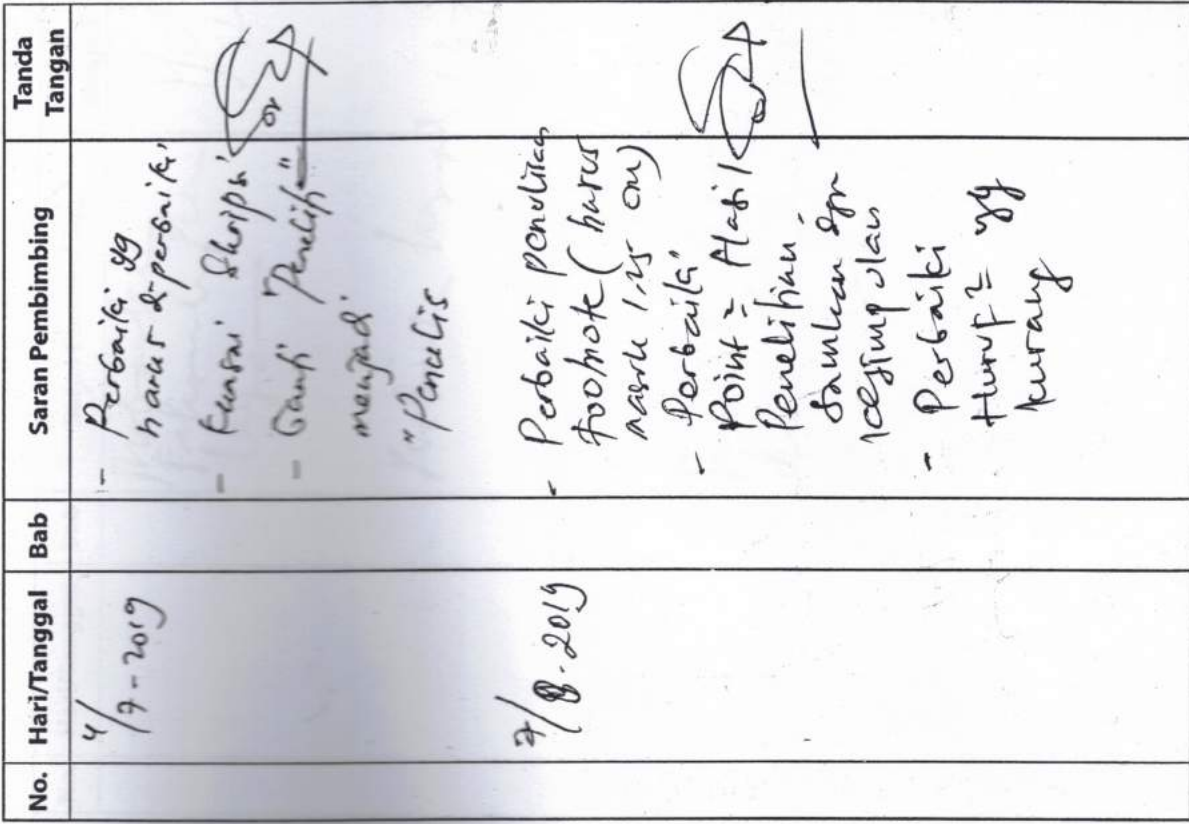 No. Hari/Tanggal Bab Saran Pembimbing Tanda Tangan
4/7-2019
- Perbaiki yg
harus diperbaiki
- Kuasai Skripsi
- Ganti "Peneliti"
menjadi
"Penulis
7/8-2019
- Perbaiki penulisan
Footnote (harus
masuk 1,25 cm)
- Perbaiki
Point = Hasil
Penelitian
Samkan dgn
kesimpulan
- Perbaiki
Huruf² yg
kurang